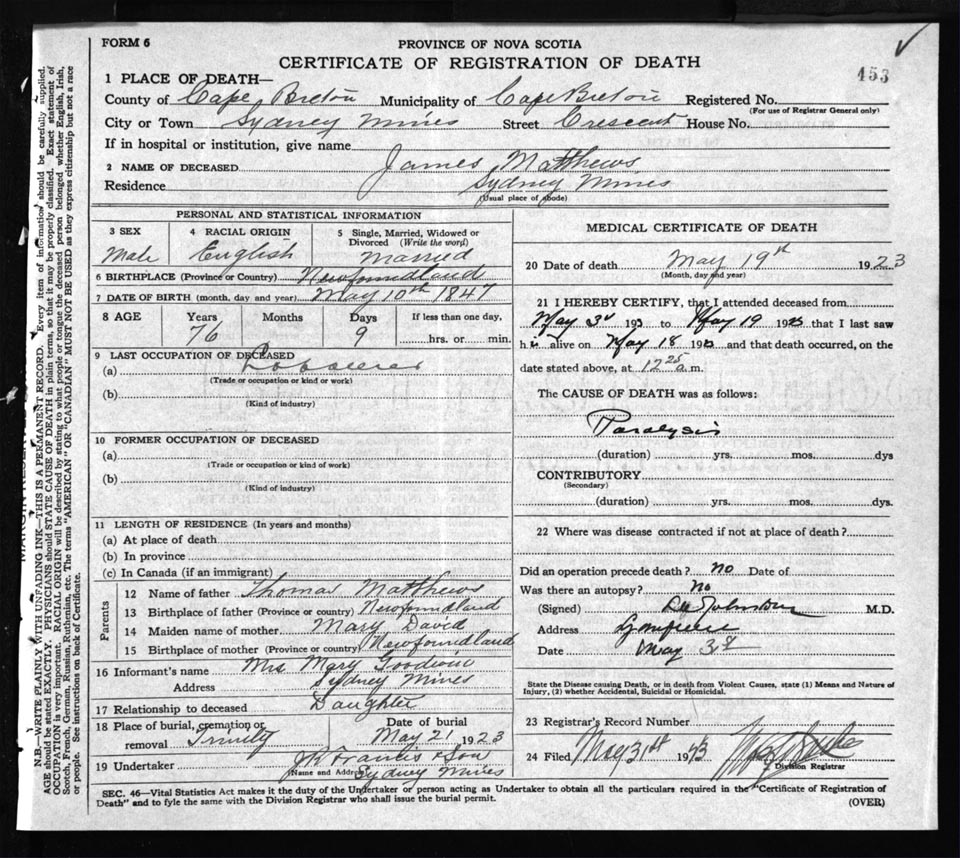 FORM 6
PROVINCE OF NOVA SCOTIA
CERTIFICATE OF REGISTRATION OF DEATH
453
1 PLACE OF DEATH—
County of Cape Breton Municipality of Cape Breton Registered No.
(For use of Registrar General only)
City or Town Sydney Mines Street Crescent House No.
If in hospital or institution, give name
2 NAME OF DECEASED James Matthews
Residence Sydney Mines
(Usual place of abode)
PERSONAL AND STATISTICAL INFORMATION
3 SEX 4 RACIAL ORIGIN 5 Single, Married, Widowed or Divorced (Write the word)
Male English Married
6 BIRTHPLACE (Province or Country) Newfoundland
7 DATE OF BIRTH (month, day and year) May 10th 1847
8 AGE Years Months Days If less than one day,
76 9 hrs. or min.
9 LAST OCCUPATION OF DECEASED
(a) Labourer
(Trade or occupation or kind or work)
(b)
(Kind of industry)
10 FORMER OCCUPATION OF DECEASED
(a)
(Trade or occupation or kind of work)
(b)
(Kind of industry)
11 LENGTH OF RESIDENCE (In years and months)
(a) At place of death
(b) In province
(c) In Canada (if an immigrant)
Parents
12 Name of father Thomas Matthews
13 Birthplace of father (Province or country) Newfoundland
14 Maiden name of mother Mary David
15 Birthplace of mother (Province or country) Newfoundland
16 Informant's name Mrs Mary Goodwin
Address Sydney Mines
17 Relationship to deceased Daughter
18 Place of burial, cremation or removal Trinity Date of burial May 21 1923
19 Undertaker J R Francis & Son
(Name and Address) Sydney Mines
MEDICAL CERTIFICATE OF DEATH
20 Date of death May 19th 1923
(Month, day and year)
21 I HEREBY CERTIFY, that I attended deceased from
May 3rd 193 to May 19 1923 that I last saw
h is alive on May 18 1923 and that death occurred, on the
date stated above, at 12 25 a.m.
The CAUSE OF DEATH was as follows:
Paralysis
(duration) yrs. mos. dys
CONTRIBUTORY
(Secondary)
(duration) yrs. mos. dys.
22 Where was disease contracted if not at place of death?
Did an operation precede death? no Date of
Was there an autopsy? No
(Signed) Johnston M.D.
Address
Date May 3
State the Disease causing Death, or in death from Violent Causes, state (1) Means and Nature of
Injury, (2) whether Accidental, Suicidal or Homicidal.
23 Registrar's Record Number
24 Filed May 31st 1923
Division Registrar
SEC. 46—Vital Statistics Act makes it the duty of the Undertaker or person acting as Undertaker to obtain all the particulars required in the "Certificate of Registration of
Death" and to fyle the same with the Division Registrar who shall issue the burial permit.
(OVER)
N.B.—WRITE PLAINLY WITH UNFADING INK—THIS IS A PERMANENT RECORD. Every item of information should be carefully supplied.
AGE should be stated EXACTLY. PHYSICIANS should STATE CAUSE OF DEATH in plain terms, so that it may be properly classified. Exact statement of
OCCUPATION is very important. RACIAL ORIGIN will be described by stating to what people or tongue the deceased person belonged whether English, Irish,
Scotch, French, German, Russian, Ruthenian, etc. The terms "AMERICAN" OR "CANADIAN" MUST NOT BE USED as they express citizenship but not a race
or people. See instructions on back of Certificate.